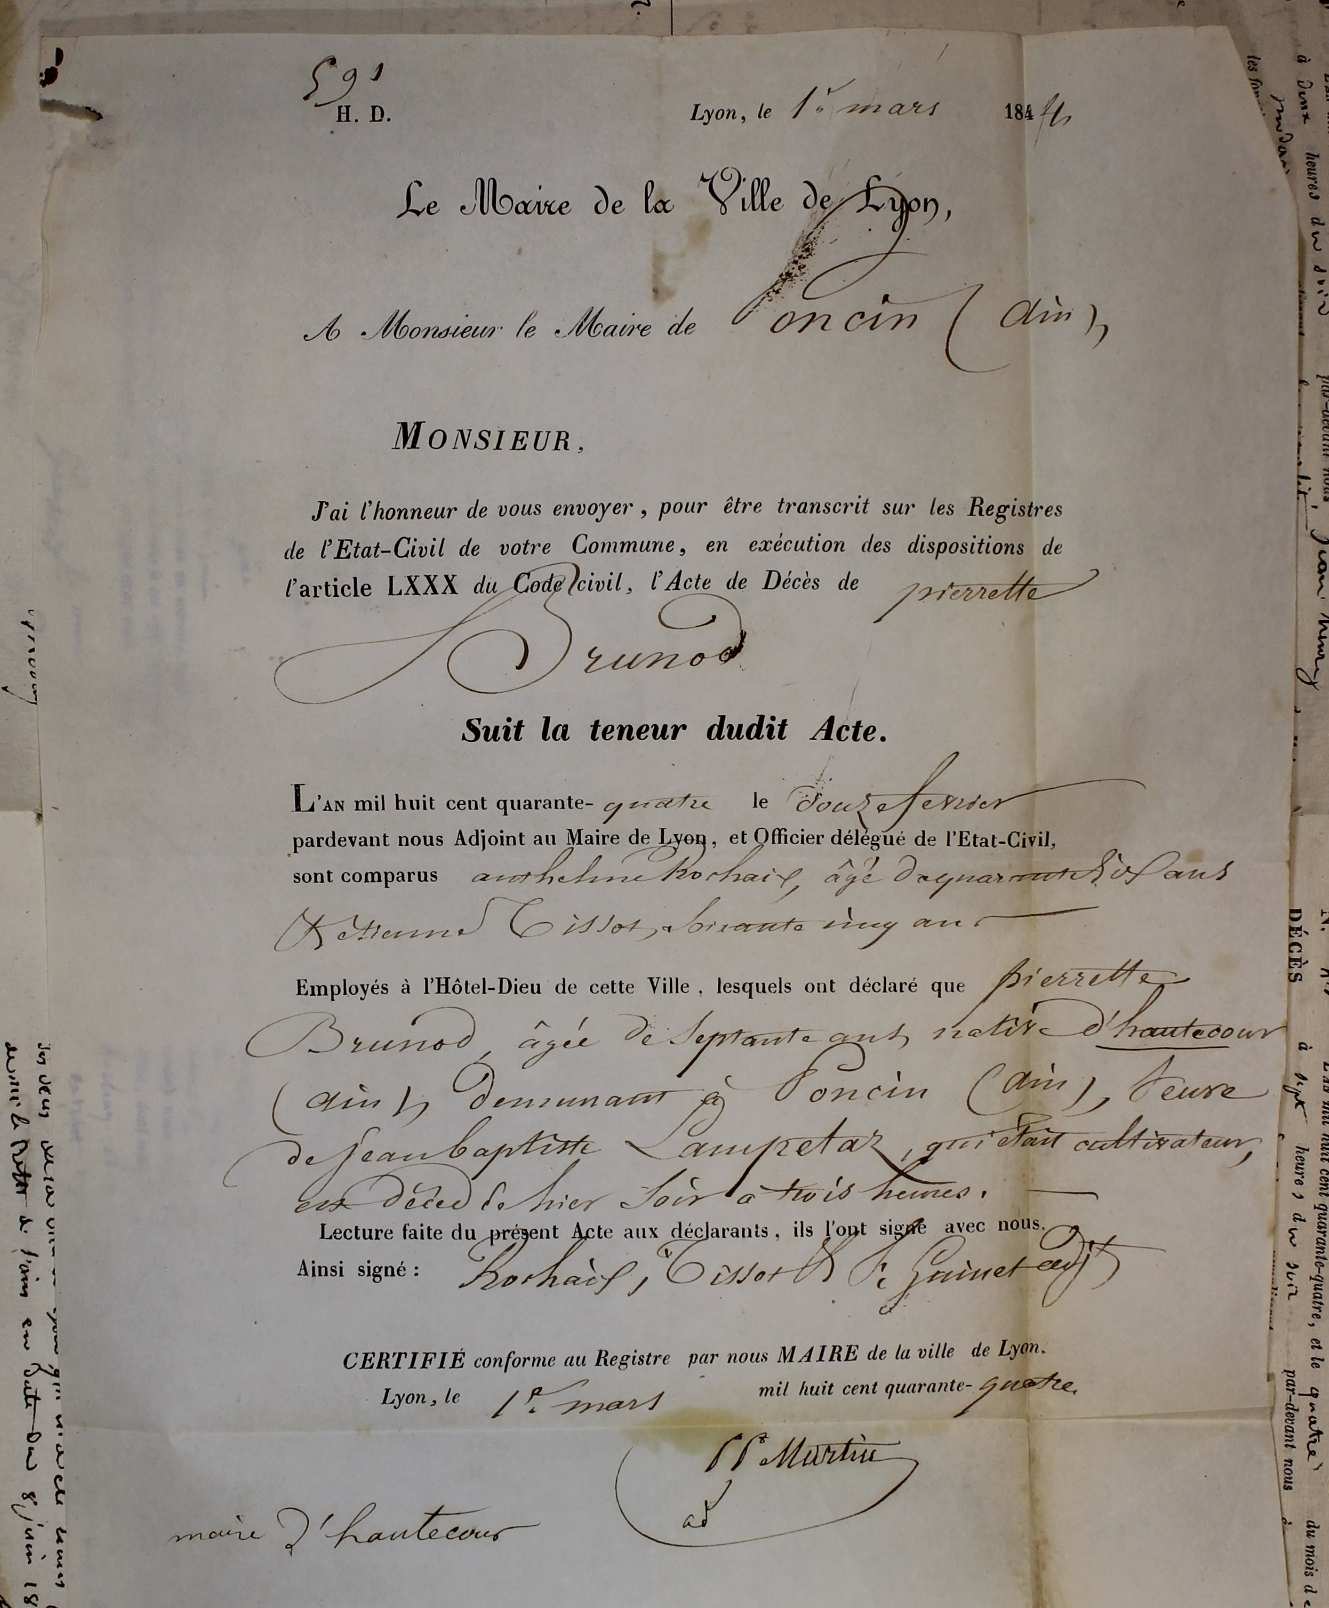 591
H. D.
Lyon, le 1er mars 1844
Le Maire de la Ville de Lyon,
A Monsieur le Maire de Poncin (ain),
MONSIEUR,
J'ai l'honneur de vous envoyer, pour être transcrit sur les Registres
de l'Etat-Civil de votre Commune, en exécution des dispositions de
l'article LXXX du Code civil, l'Acte de Décès de pierrette
Brunod
Suit la teneur dudit Acte.
L'AN mil huit cent quarante-quatre le douze fevrier
pardevant nous Adjoint au Maire de Lyon, et Officier délégué de l'Etat-Civil,
sont comparus anthelme Rochaix, âgé de quarante six ans
& etienne Tissot, soixante cinq ans
Employés à l'Hôtel-Dieu de cette Ville, lesquels ont déclaré que pierrette
Brunod, âgée de septante ans, native d'hautecour
(ain), demeurant à Poncin (ain), veuve
de jean baptiste Lampetaz, qui était cultivateur,
est décédée hier soir à trois heures.
Lecture faite du présent Acte aux déclarants, ils l'ont signé avec nous.
Ainsi signé : Rochaix, Tissot & F. Guinet adjt
CERTIFIÉ conforme au Registre par nous MAIRE de la ville de Lyon.
Lyon, le 1er mars mil huit cent quarante-quatre.
Martin
ad
maire d'hautecour
à deux heures du soir
par-devant nous
DÉCÈS
à sept heures du soir par-devant nous à
mil huit cent quarante-quatre, et le quatre du mois de
de l'ain en date du 8 juin 18